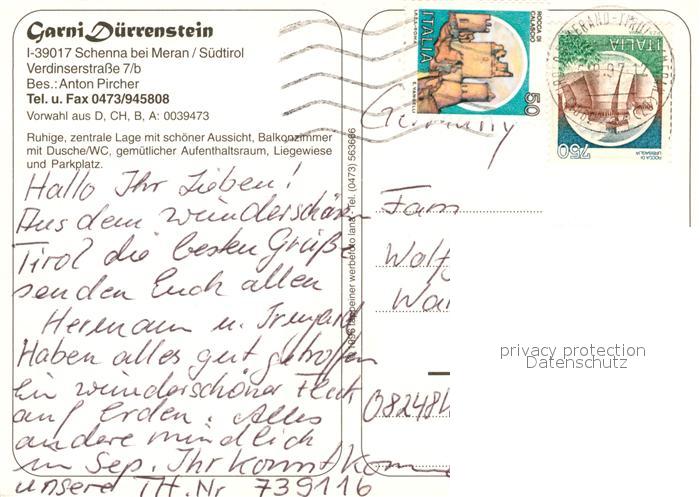 Garni Dürrenstein
I-39017 Schenna bei Meran / Südtirol
Verdinserstraße 7/b
Bes.: Anton Pircher
Tel. u. Fax 0473/945808
Vorwahl aus D, CH, B, A: 0039473
Ruhige, zentrale Lage mit schöner Aussicht, Balkonzimmer
mit Dusche/WC, gemütlicher Aufenthaltsraum, Liegewiese
und Parkplatz.
Hallo Ihr Lieben!
Aus dem wunderschönen
Tirol die besten Grüße
senden Euch allen
Hermann u. Irmgard
Haben alles gut getroffen
Ein wunderschöner Fleck
auf Erden. Alles
andere mündlich
im Sep. Ihr könnt kommen
unsere TH. Nr 739116
werbefoto lana - Tel. (0473) 563666
ROCCA DI
CALASCIO
ITALIA
50
I.P.Z.S. ROMA
E. VANGELLI
ITALIA
750
ROCCA DI
URBISAGLIA
Germany
Fam
Wolfg
Wa
08248
privacy protection
Datenschutz